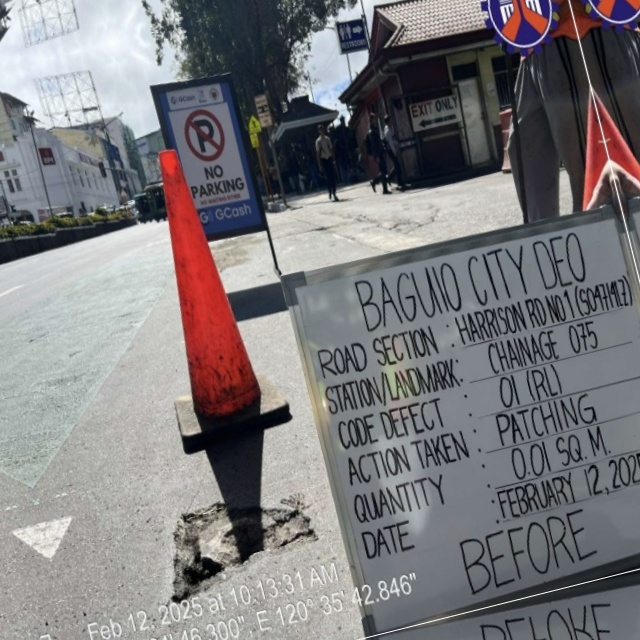 GCash
NO
PARKING
GCash
EXIT ONLY
BAGUIO CITY DEO
ROAD SECTION : HARRISON RD NO 1 (S04741LZ)
STATION/LANDMARK: CHAINAGE 075
CODE DEFECT : 01 (RL)
ACTION TAKEN : PATCHING
QUANTITY : 0.01 SQ. M.
DATE : FEBRUARY 12, 2025
BEFORE
Feb 12, 2025 at 10:13:31 AM
46.300", E 120° 35' 42.846"
BEFORE